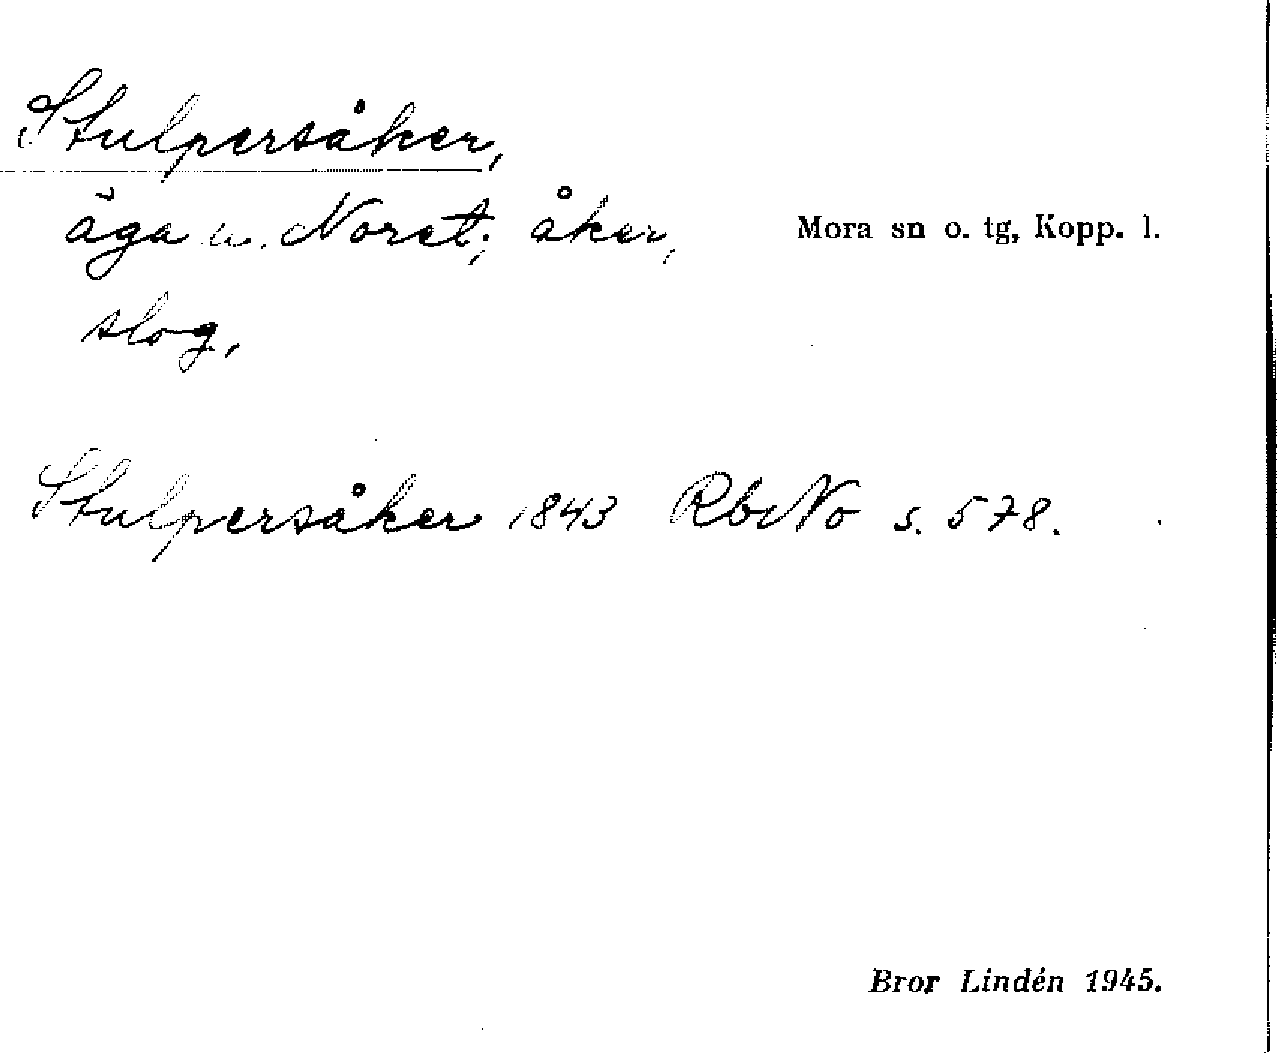 Stulpersåker,
äga u. Noret; åker, Mora sn o. tg, Kopp. l.
slog,
Stulpersåker 1843 RbNo s. 578.
Bror Lindén 1945.